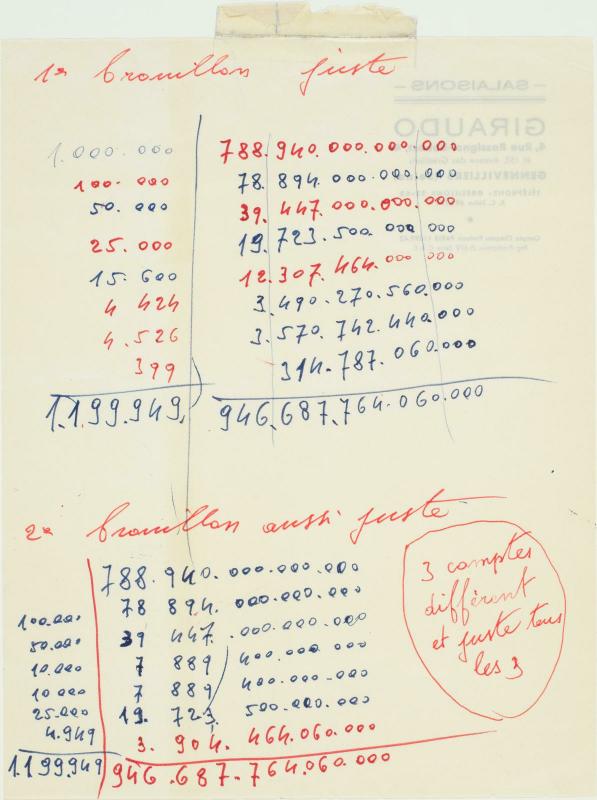 1er brouillon juste
- SALAISONS -
GIRAUDO
1.000.000 788.940.000.000.000
100.000 78.894.000.000.000
50.000 39.447.000.000.000
25.000 19.723.500.000.000
15.600 12.307.464.000.000
4 424 3.490.270.560.000
4.526 3.570.742.440.000
399 314.787.060.000
1.199.949. 946.687.764.060.000
2e brouillon aussi juste
788.940.000.000.000
100.000 78 894.000.000.000
50.000 39 447.000.000.000
10.000 7 889 400.000.000
10.000 7 889 400.000.000
25.000 19.723.500.000.000
4.949 3.904.464.060.000
1.199.949 946.687.764.060.000
3 comptes
différent
et juste tous
les 3